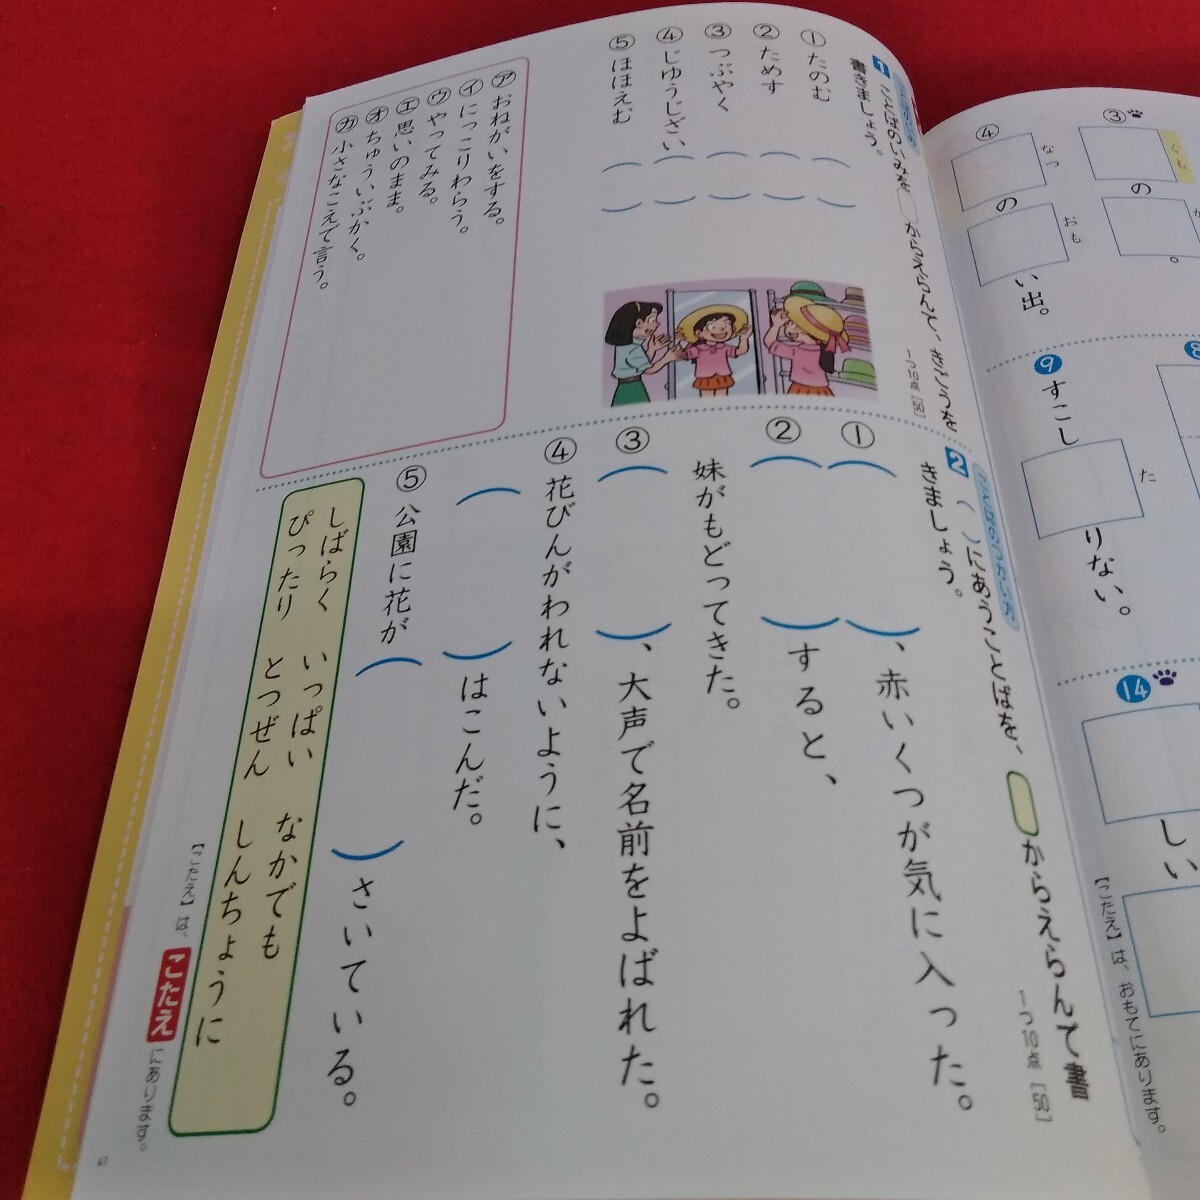 ③
くも
の
。
④
なつ
の
おも
い出。
⑨
すこし
た
りない。
⑭
しい
【こたえ】は、おもてにあります。
1
ことばのいみを
からえらんで、きごうを
書きましょう。
1つ10点【50】
①たのむ
②ためす
③つぶやく
④じゆうじざい
⑤ほほえむ
㋐おねがいをする。
㋑にっこりわらう。
㋒やってみる。
㋓思いのまま。
㋔ちゅういぶかく。
㋕小さなこえで言う。
2
ことばのつかいかた
（　）にあうことばを、
からえらんで書
きましょう。
1つ10点【50】
①（　）、赤いくつが気に入った。
②（　）すると、
妹がもどってきた。
③（　）、大声で名前をよばれた。
④花びんがわれないように、
（　）はこんだ。
⑤公園に花が（　）さいている。
しばらく　いっぱい　なかでも
ぴったり　とつぜん　しんちょうに
【こたえ】は、こたえにあります。